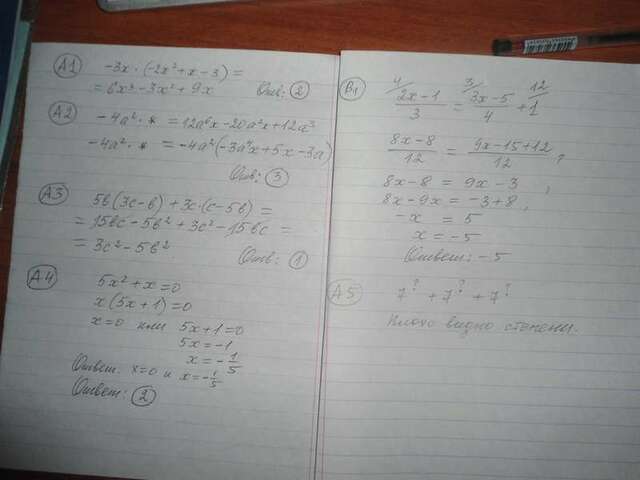 А1 -3x · (-2x² + x - 3) =
= 6x³ - 3x² + 9x Ответ: 2
А2 -4a² · * = 12a⁶x - 20a²x + 12a³
-4a² · * = -4a²(-3a⁴x + 5x - 3a)
Ответ: 3
А3 5b(3c - b) + 3c · (c - 5b) =
= 15bc - 5b² + 3c² - 15bc =
= 3c² - 5b² Ответ: 1
А4 5x² + x = 0
x(5x + 1) = 0
x = 0 или 5x + 1 = 0
5x = -1
x = -1/5
Ответ. x = 0 и x = -1/5
Ответ: 2
В1 4/ (2x - 1)/3 = 3/ (3x - 5)/4 + 12/ 1
(8x - 8)/12 = (9x - 15 + 12)/12 ,
8x - 8 = 9x - 3 ,
8x - 9x = -3 + 8 ,
-x = 5
x = -5
Ответ: -5
А5 7? + 7? + 7?
Плохо видно степени.